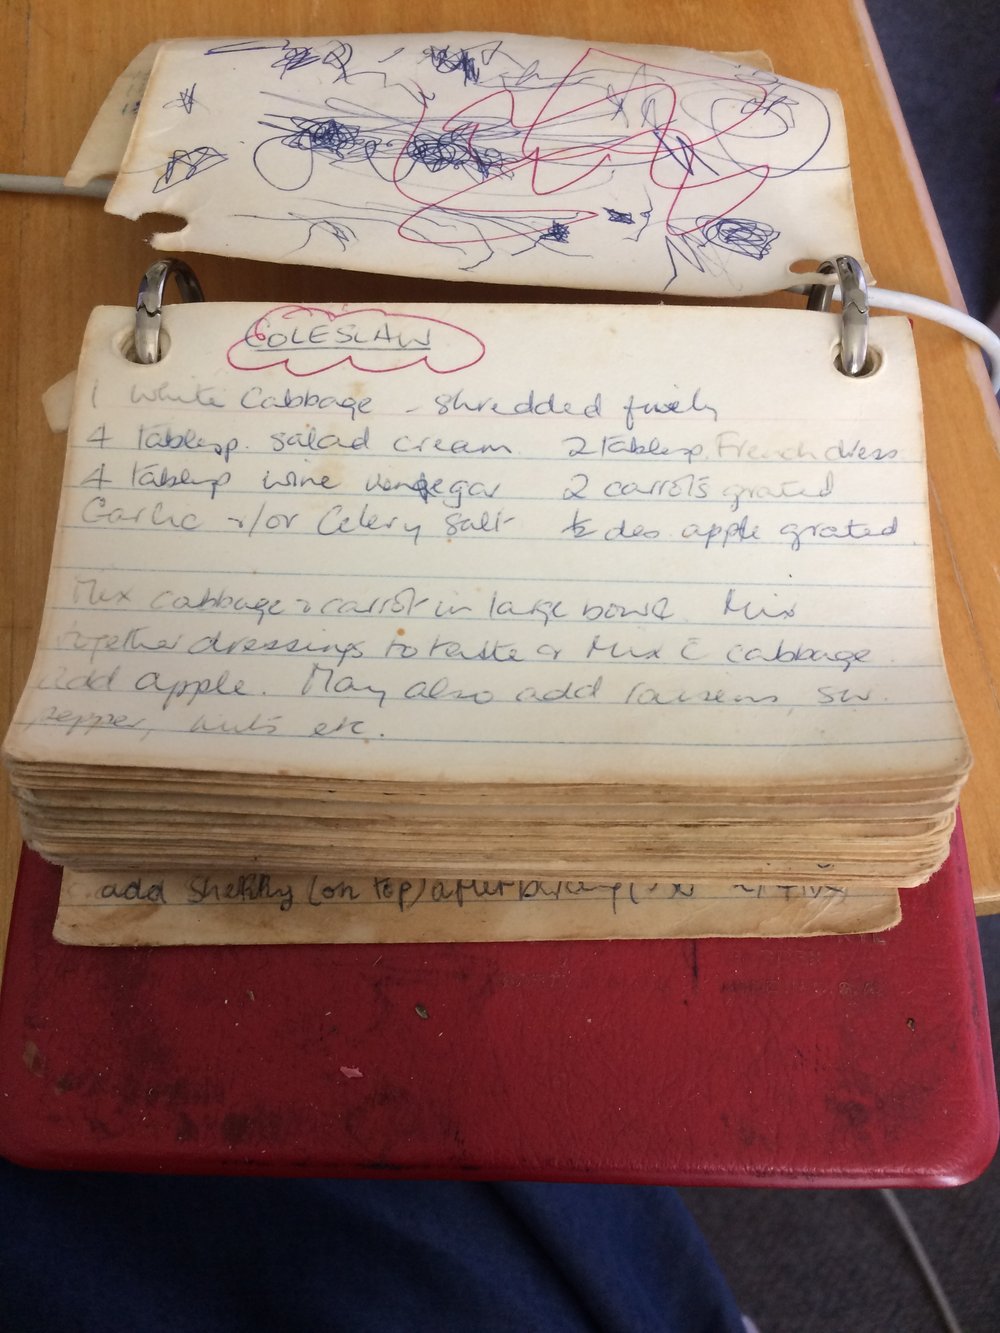 COLESLAW
1 White Cabbage - shredded finely
4 Tablesp. salad cream 2 Tablesp. French dress
4 Tablesp wine vinegar 2 carrots grated
Garlic &/or Celery Salt ½ des. apple grated.
Mix cabbage & carrot in large bowl. Mix
together dressings to taste & Mix c̄ cabbage.
Add apple. May also add raisens, sw.
pepper, nuts etc.
add (on top) after